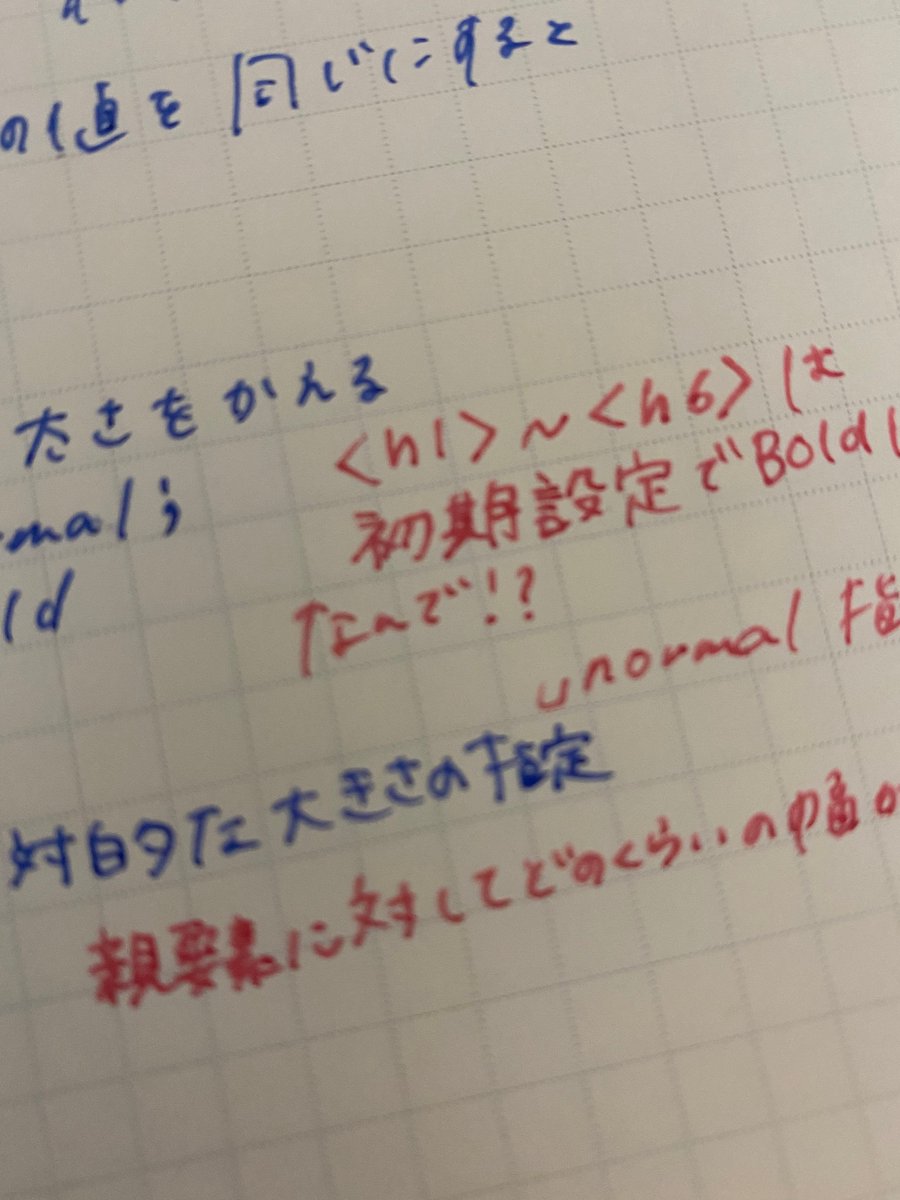 の値を同じにすると
太さをかえる
<h1>~<h6>は
初期設定でBold
mal;
ld
なんで!?
normal 指
対的な大きさの指定
親要素に対してどのくらいの幅か